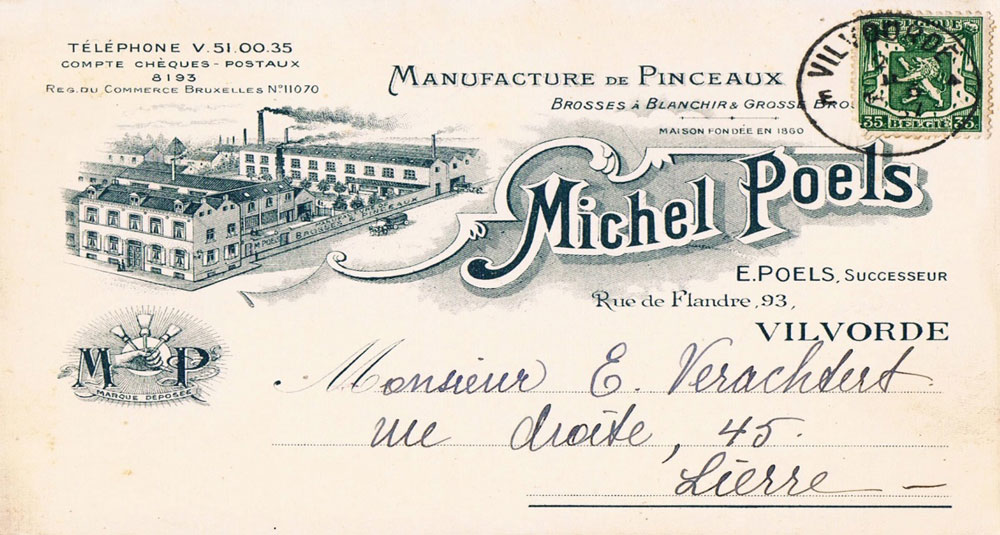 TÉLÉPHONE V.51.00.35
COMPTE CHÈQUES-POSTAUX
8193
REG. DU COMMERCE BRUXELLES Nº11070
MANUFACTURE DE PINCEAUX
BROSSES À BLANCHIR & GROSSE
MAISON FONDÉE EN 1860
Michel Poels
E. POELS, SUCCESSEUR
Rue de Flandre, 93,
VILVORDE
M. POELS BROSSES & PINCEAUX
M P
MARQUE DÉPOSÉE
Monsieur E. Verachtert
rue droite, 45.
Lierre —
VILVOORDE
BELGIQUE
35 BELGIE 35